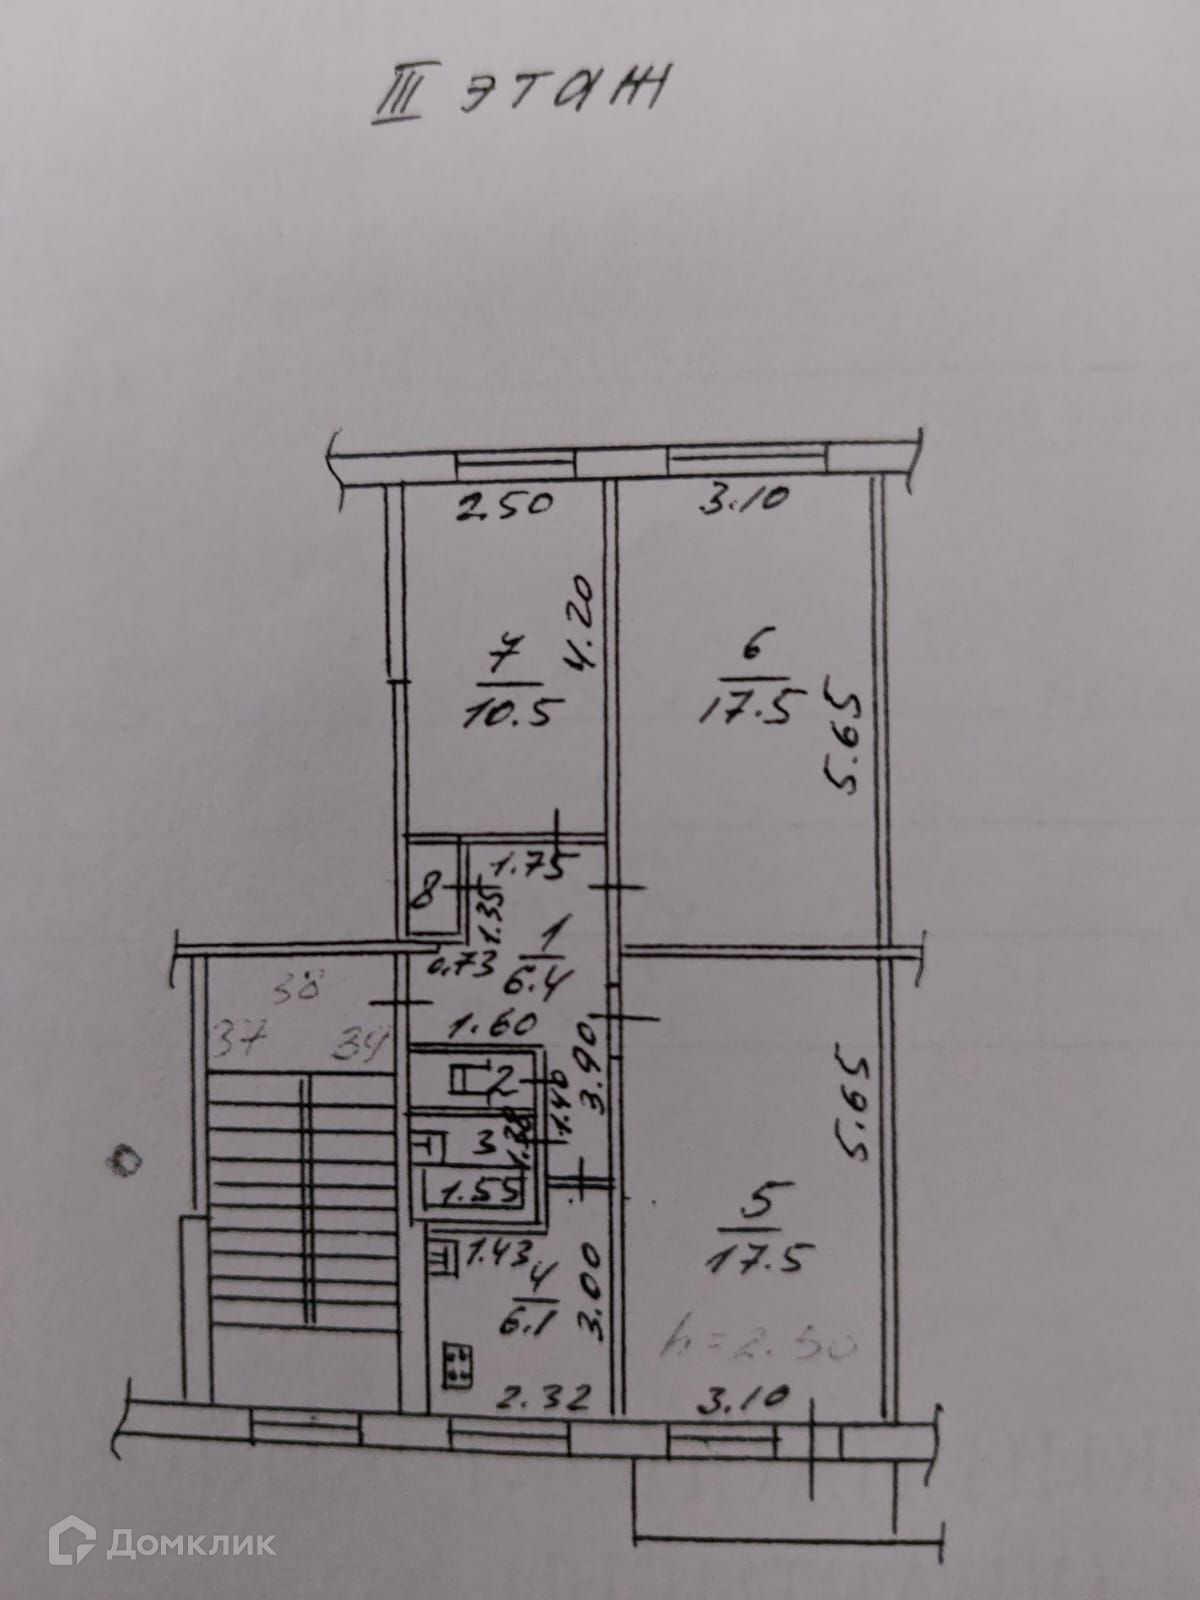 III этаж
2.50
3.10
4.20
7
10.5
6
17.5
5.65
1.75
8
1.35
1
6.4
0.73
38
37
39
1.60
3.90
2
1.40
3
1.55
5.65
5
17.5
1.43
4
6.1
3.00
h=2.50
2.32
3.10
Домклик